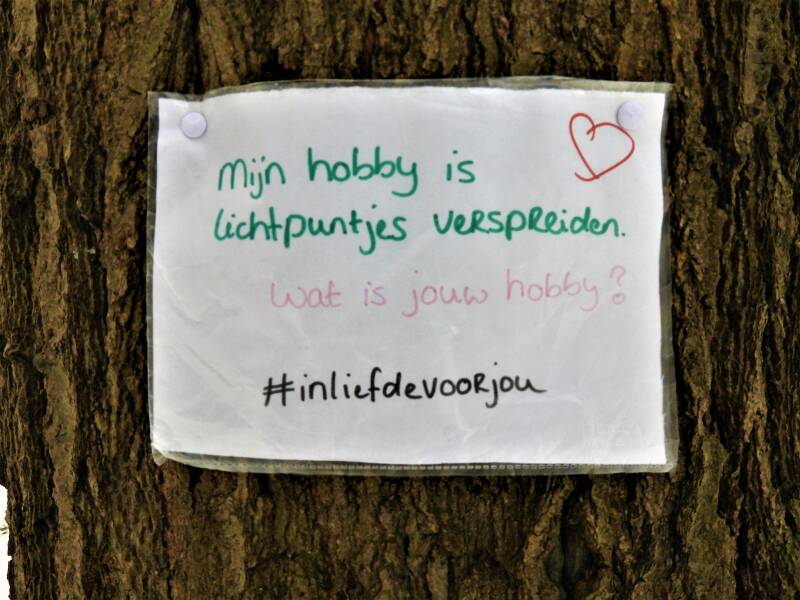 Mijn hobby is
lichtpuntjes verspreiden.
Wat is jouw hobby?
#inliefdevoorjou